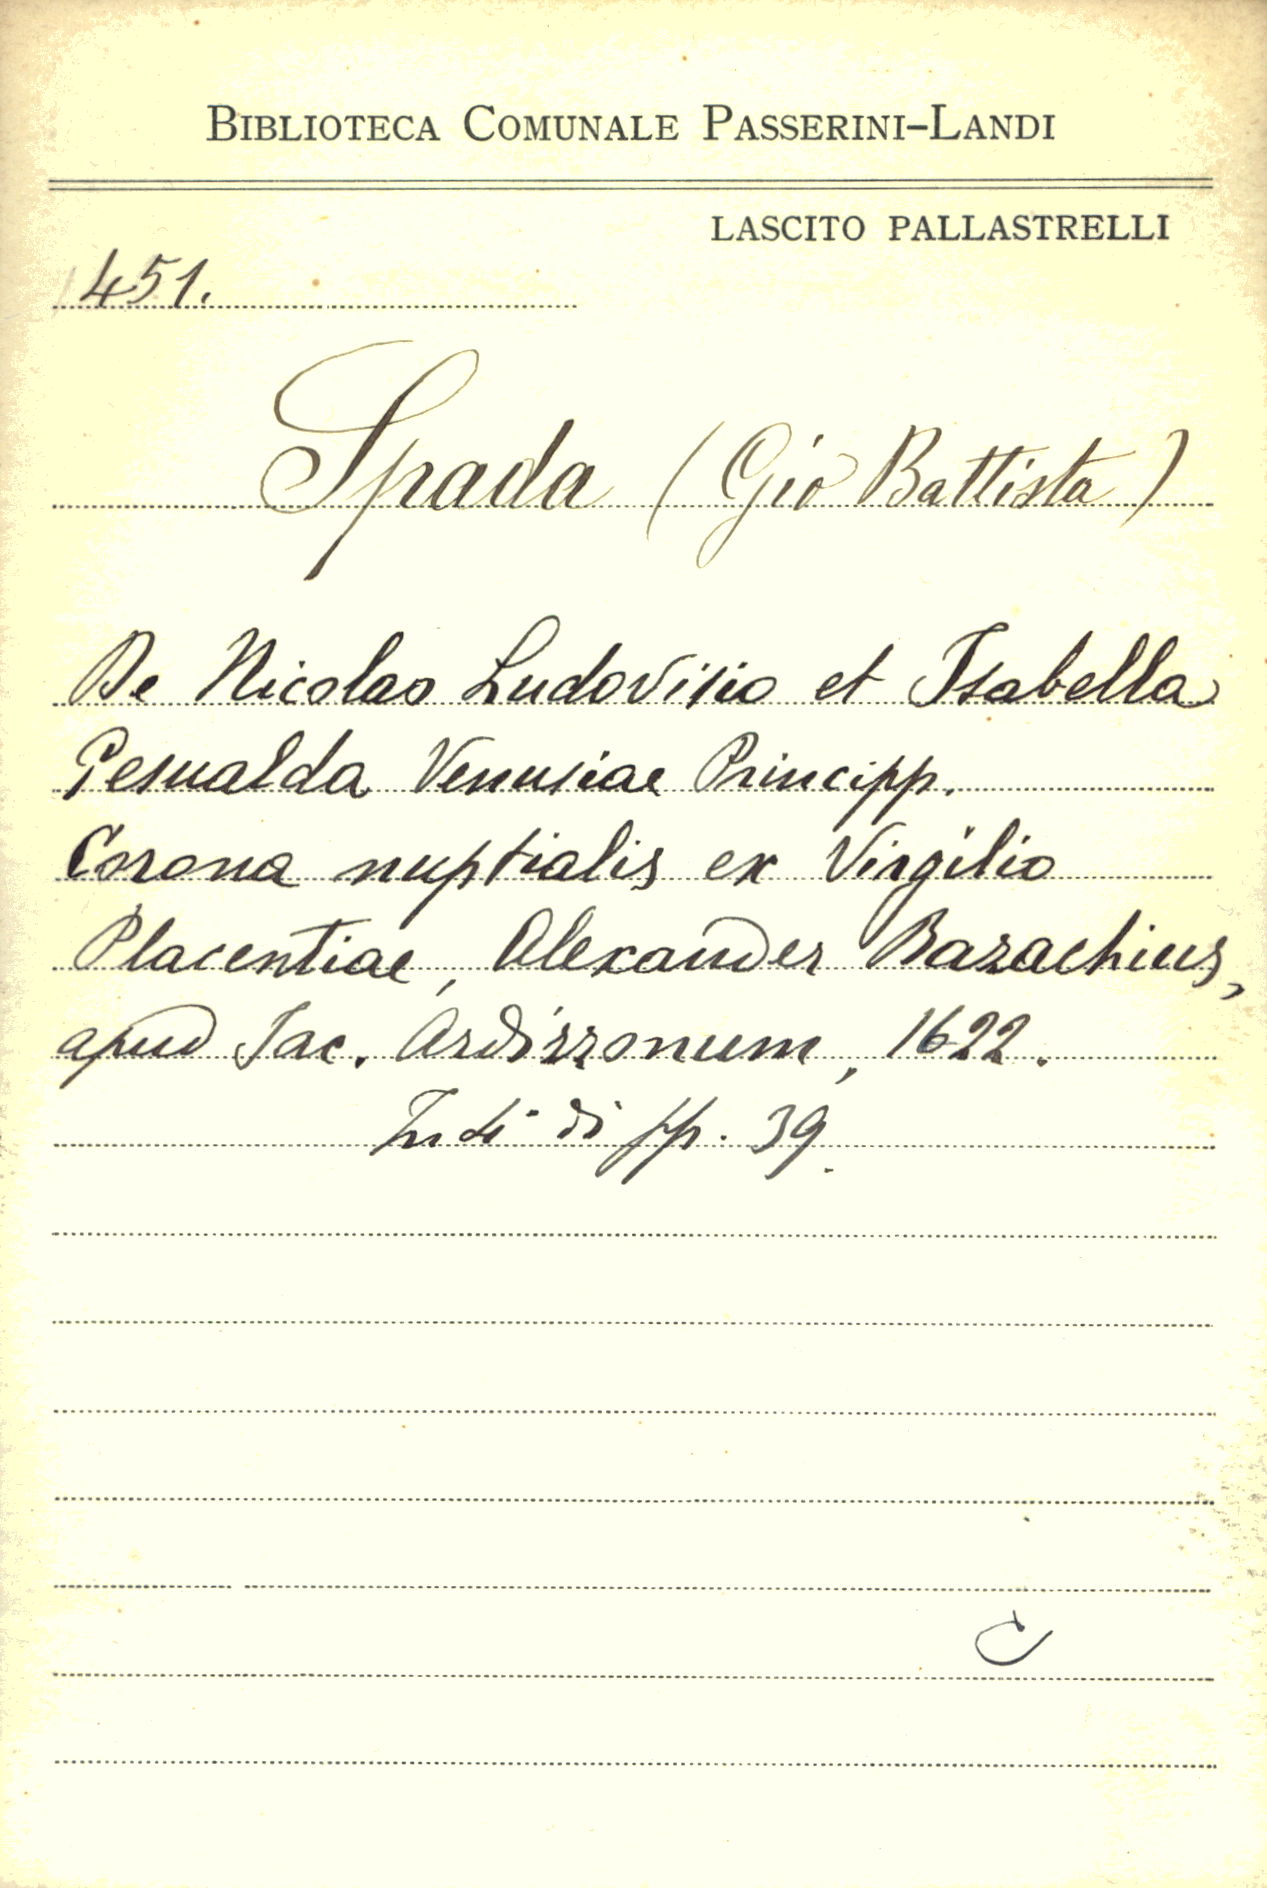 BIBLIOTECA COMUNALE PASSERINI-LANDI
LASCITO PALLASTRELLI
451.
Spada (Gio Battista)
De Nicolao Ludovisio et Isabella
Gesualda Venusiae Principp.
Corona nuptialis ex Virgilio
Placentiae, Alexander Bazachius,
apud Jac. Ardizzonum, 1622.
di pp. 39.
C